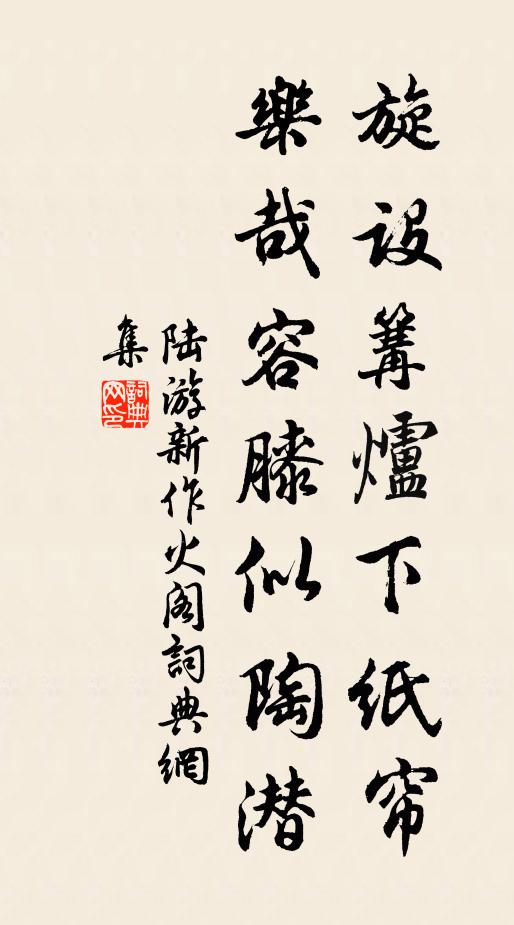 旋设篝爐下纸帘
樂哉容膝似陶潜
陆游新作火阁詞典網
集
詞典网印